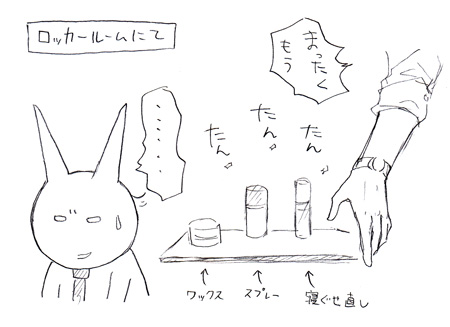 ロッカールームにて
まったく
もう
たん
たん
たん
・・・・・・
ワックス
スプレー
寝ぐせ直し